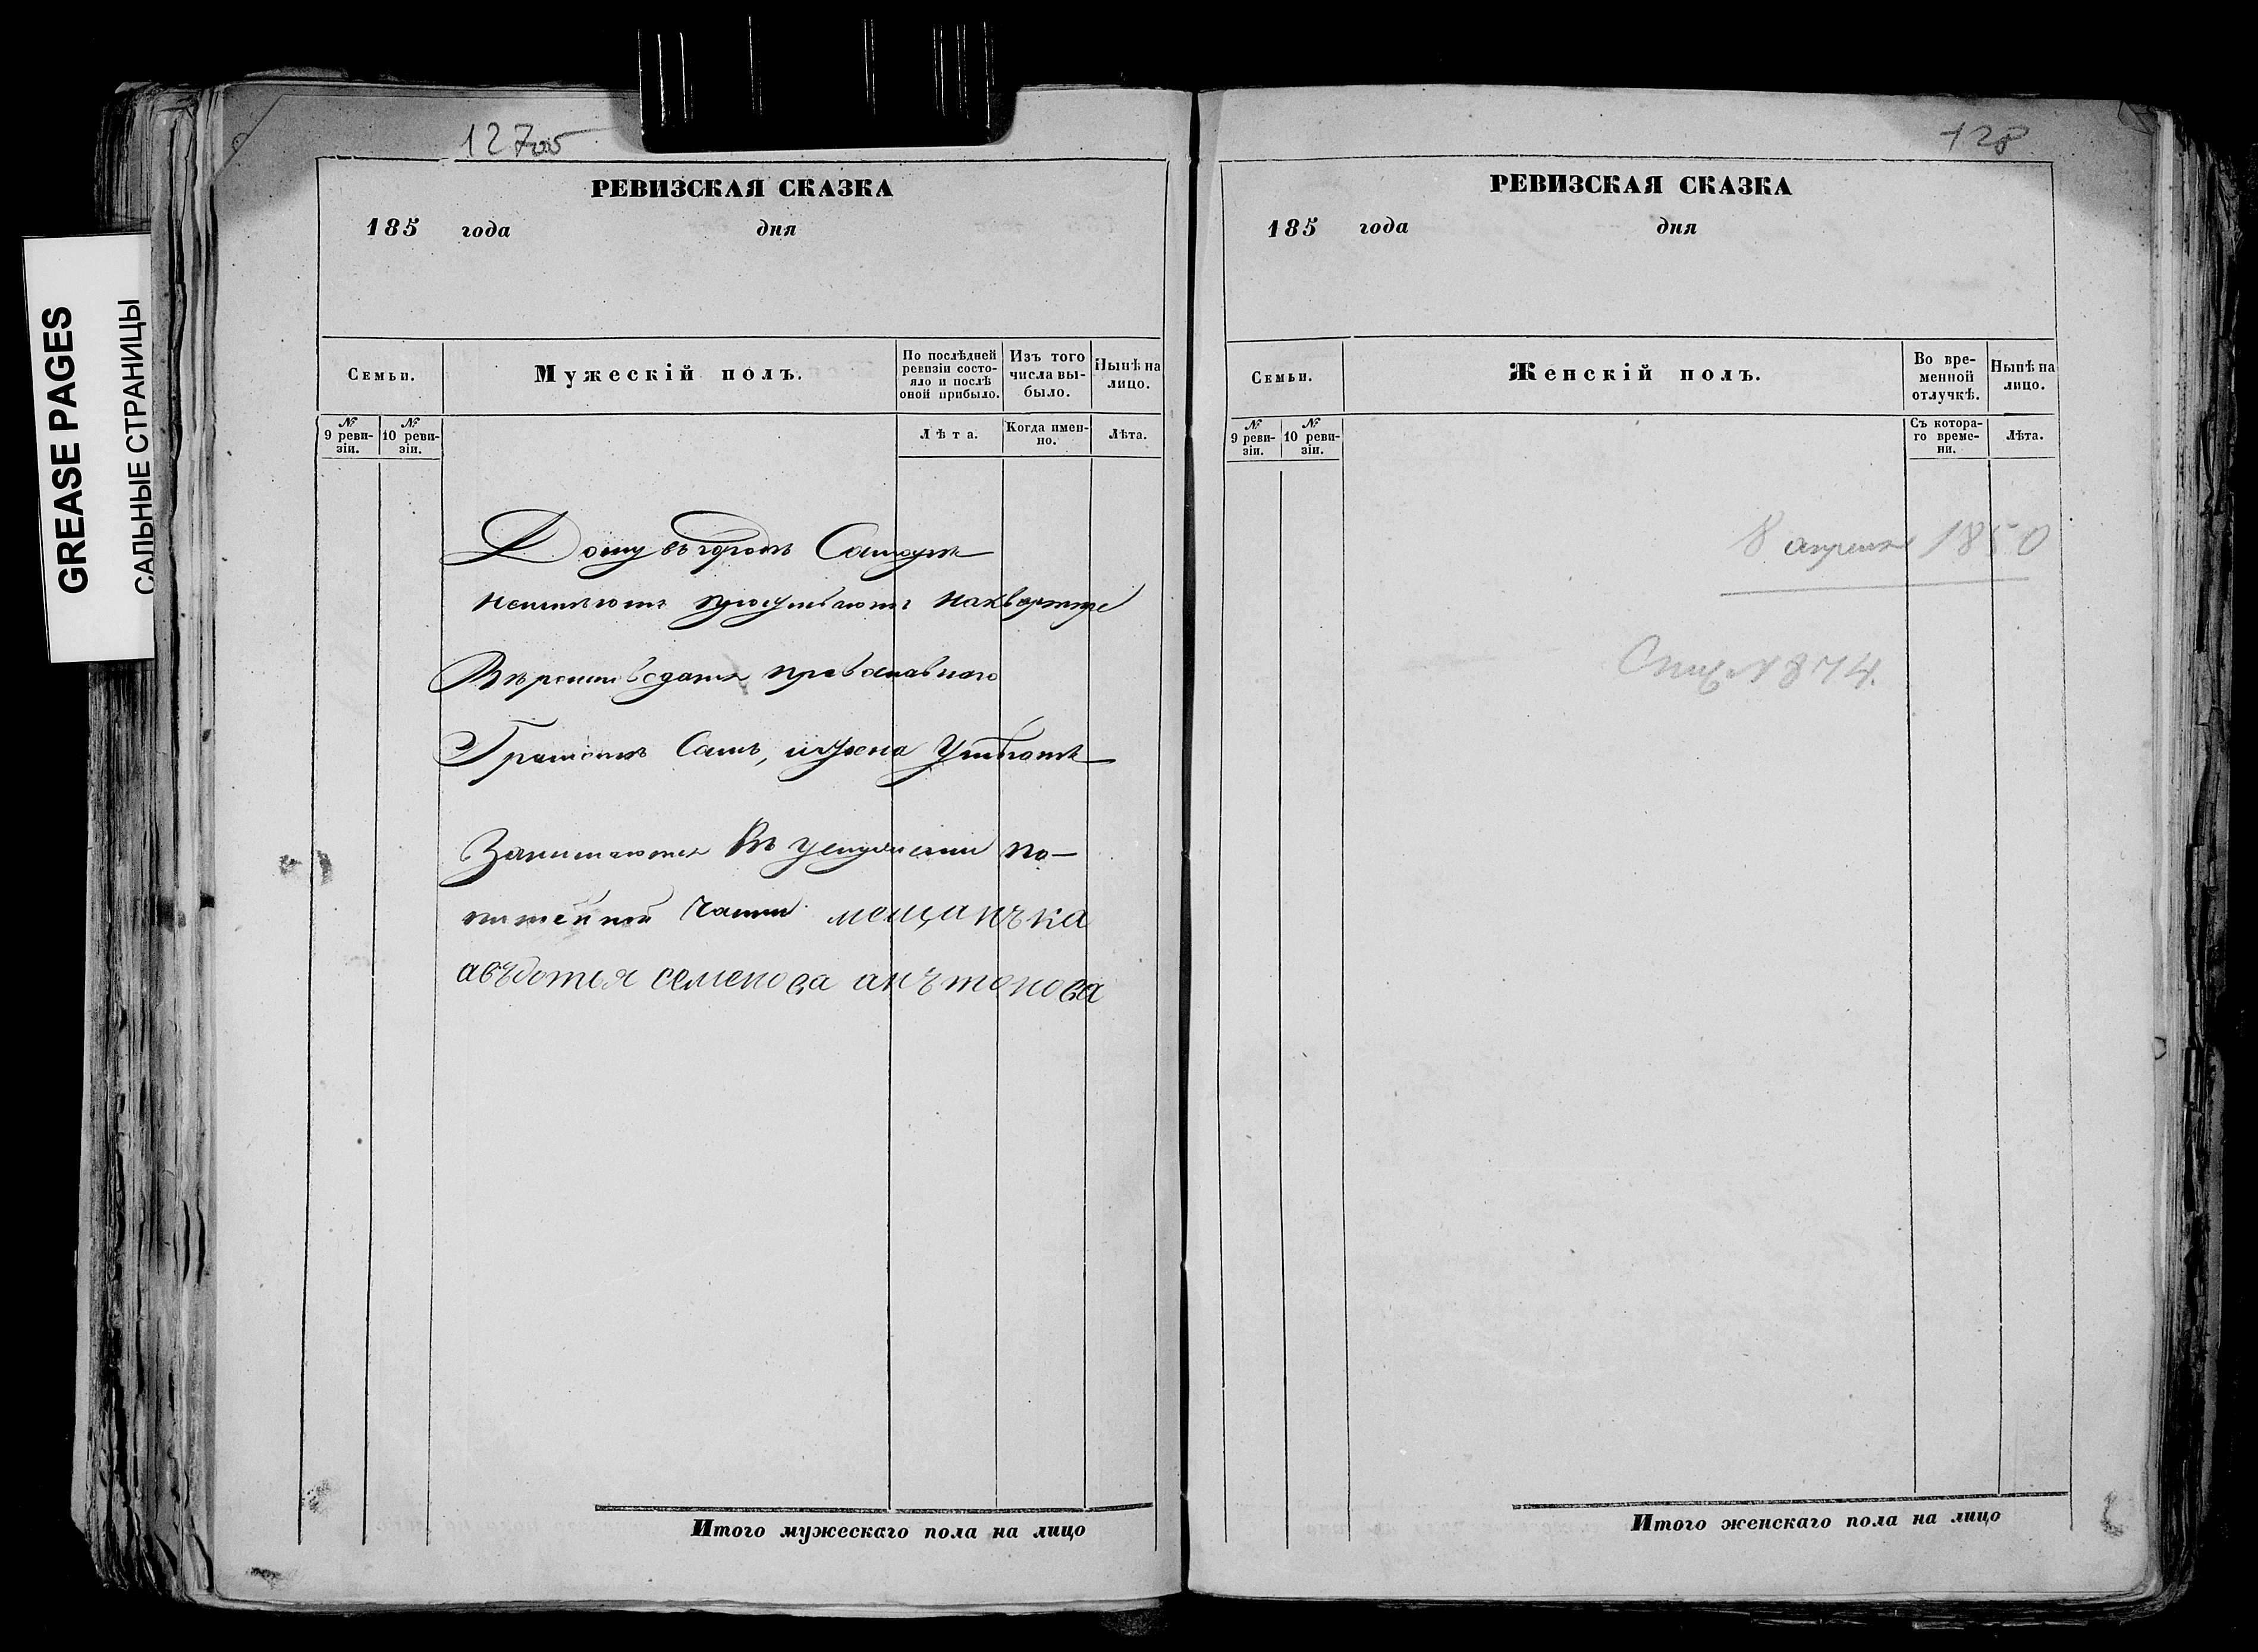 GREASE PAGES
САЛЬНЫЕ СТРАНИЦЫ
127об
РЕВИЗСКАЯ СКАЗКА
185 года дня
Семьи.
Мужескій полъ.
По послѣдней ревизіи состояло и послѣ оной прибыло.
Изъ того числа выбыло.
Нынѣ на лицо.
№ 9 ревизіи.
№ 10 ревизіи.
Лѣта.
Когда именно.
Лѣта.
Дому въ городѣ
неимѣютъ наквартире
Вѣроисповеданія православнаго
Грамотѣ Самъ, ижена
Занимаются Въ услуженіи по
питейной части мещанъка
авъдотья семенова анътонова
Итого мужескаго пола на лицо
128
РЕВИЗСКАЯ СКАЗКА
185 года дня
Семьи.
Женскій полъ.
Во временной отлучкѣ.
Нынѣ на лицо.
№ 9 ревизіи.
№ 10 ревизіи.
Съ котораго времени.
Лѣта.
8 апреля 1850
№ 874.
Итого женскаго пола на лицо